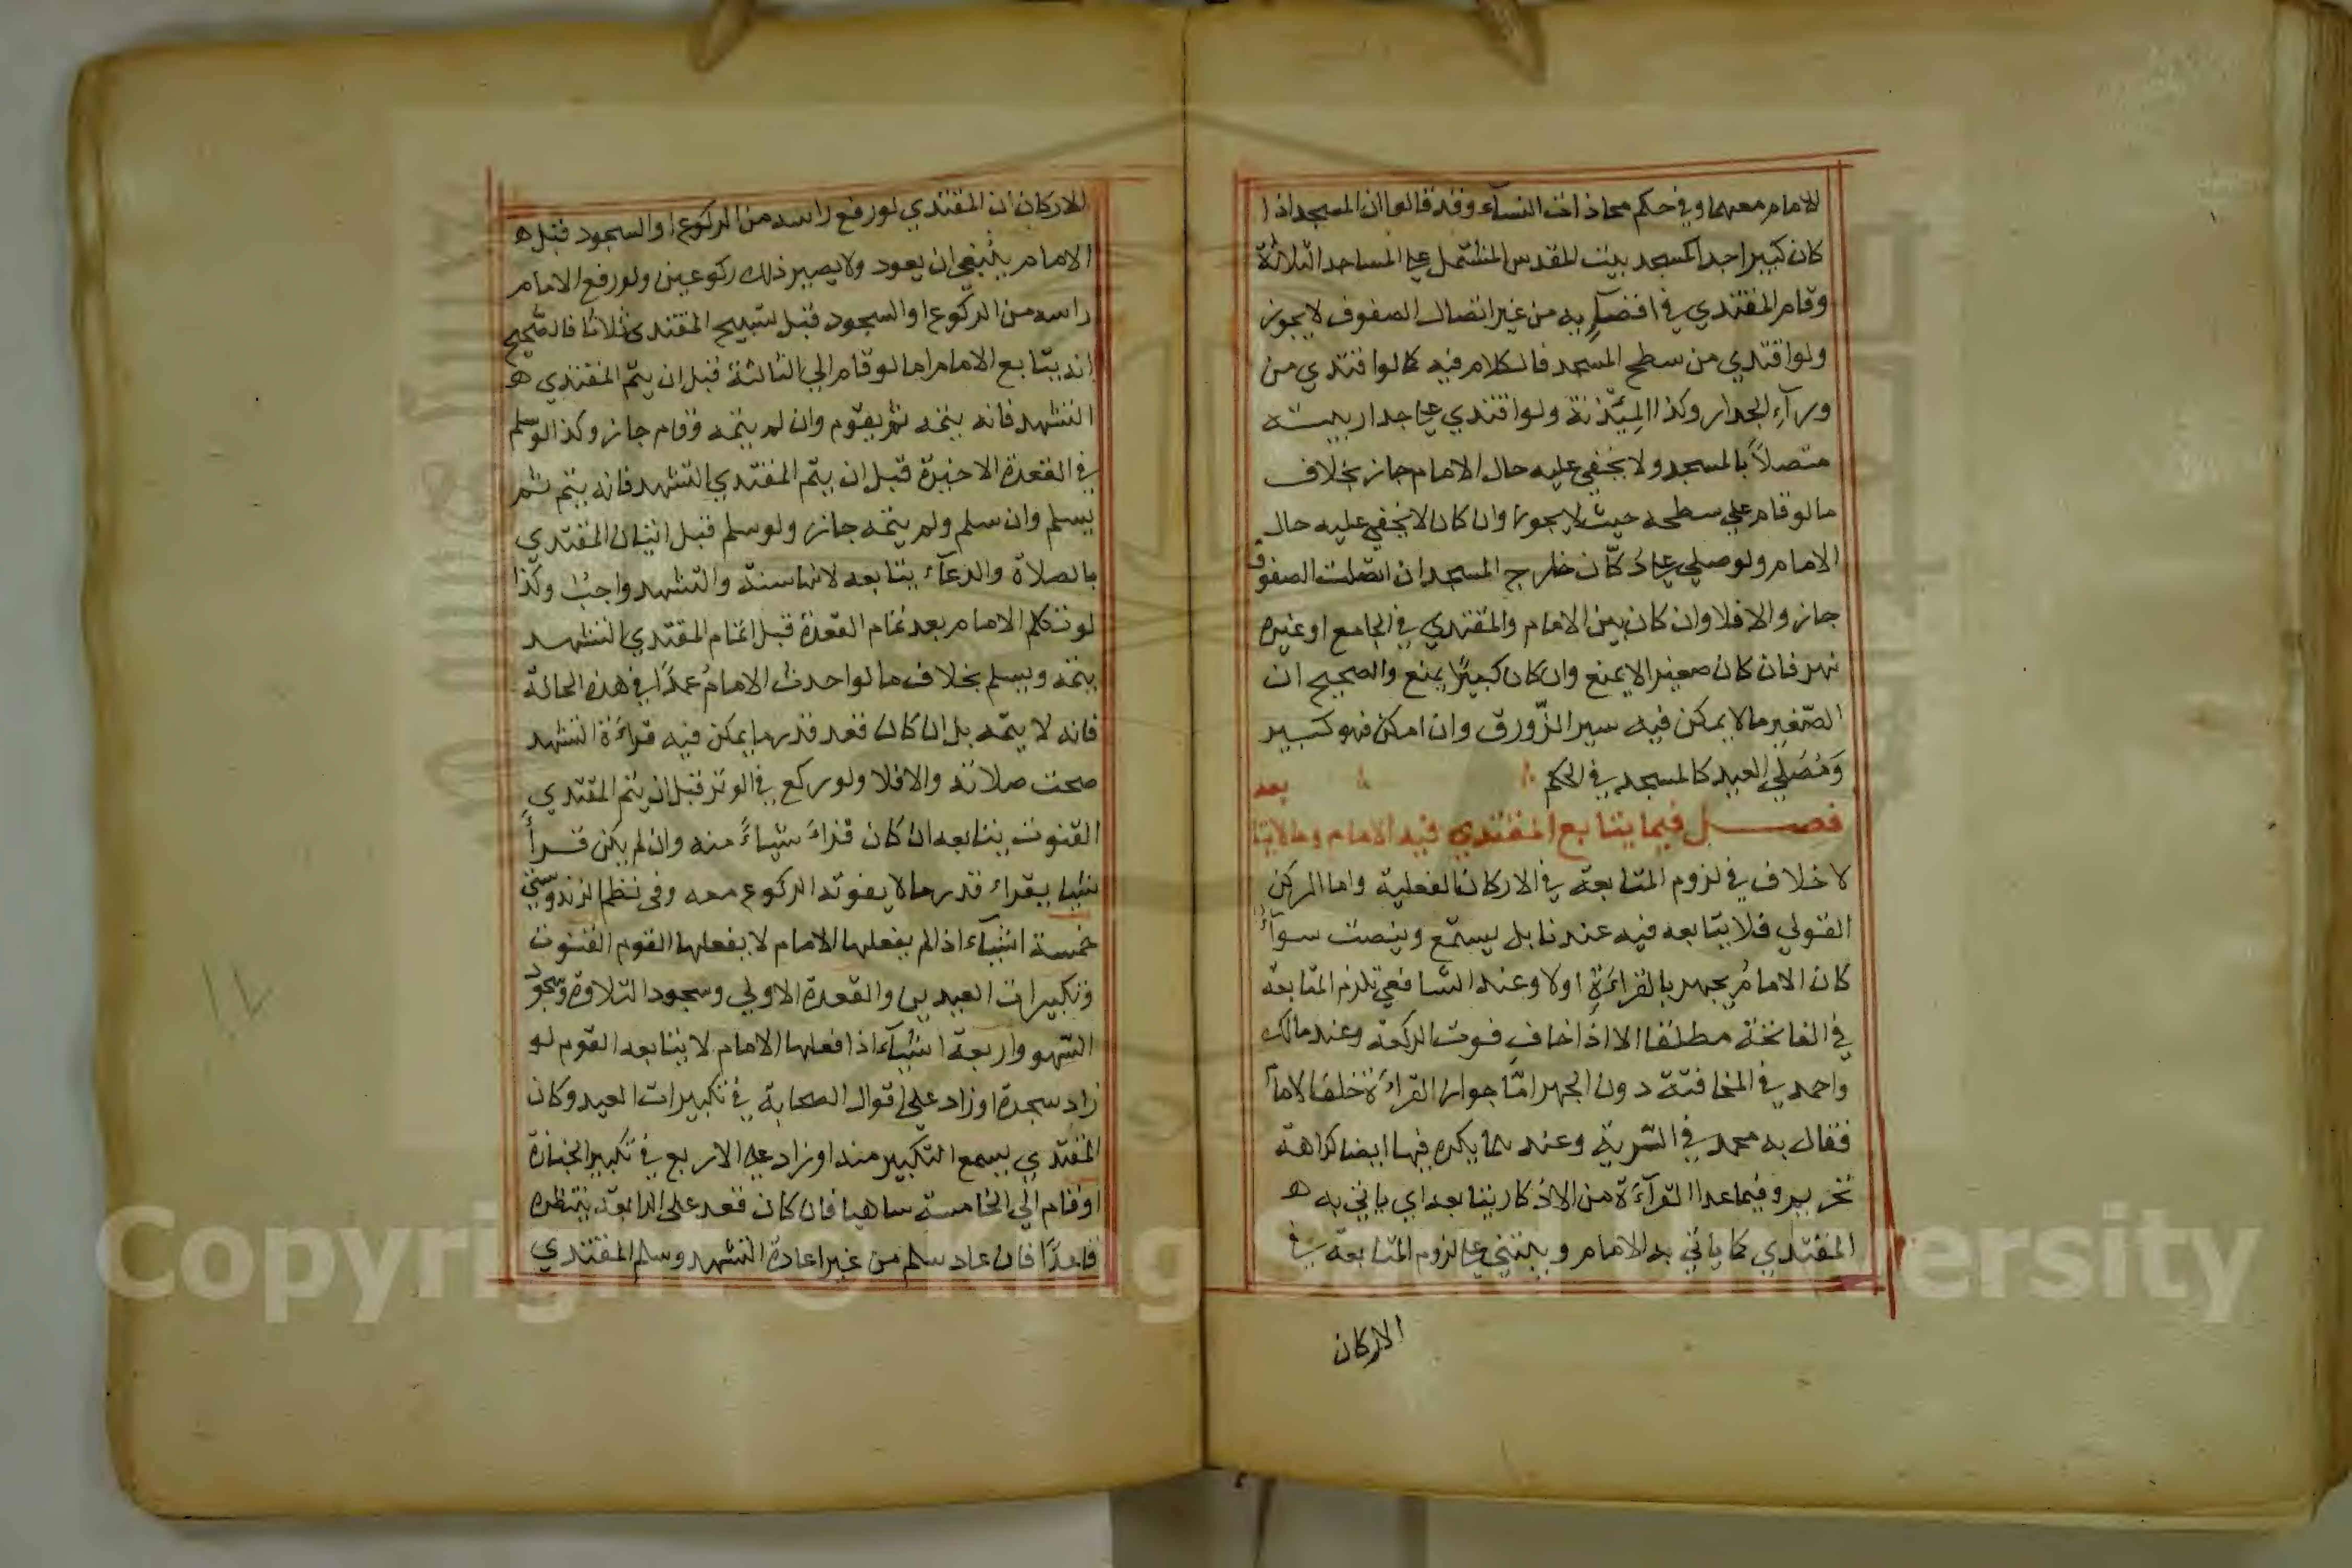 للامام معهما وفي حكم محاذات النساء وقد قالوا ان المسجد اذا
كان كبيرا جدا كمسجد بيت المقدس المشتمل على المساجد الثلاثة
وقام المقتدي في اقصاه به من غير اتصال الصفوف لا يجوز
ولو اقتدي من سطح المسجد فالكلام فيه كما لو اقتدي من
ورآء الجدار وكذا المئذنة ولو اقتدي على جدار بيته
متصلاً بالمسجد ولا يخفي عليه حال الامام جاز بخلاف
ما لو قام علي سطحه حيث لا يجوز وان كان لا يخفي عليه حال
الامام ولو صلي على دكّان خارج المسجد ان اتصلت الصفوف
جاز والا فلا وان كان بين الامام والمقتدي في الجامع او غيره
نهر فان كان صغيرا لا يمنع وان كان كبيرًا يمنع والصحيح ان
الصّغير ما لا يمكن فيه سير الزّورق وان امكن فهو كبير
وَمُصَلي العيد كالمسجد في الحكم
فصل فيما يتابع المقتدي فيه الامام وما لا يتابعه
لا خلاف في لزوم المتابعة في الاركان الفعلية واما الركن
القولي فلا يتابعه فيه عندنا بل يستمع وينصت سوآءٌ
كان الامامُ يجهر بالقرآءةِ اولا وعند الشافعي تلزم المتابعة
في الفاتحة مطلقا الا اذا خاف فوت الركعة وعند مالك
واحمد في المخافتة دون الجهر امّا جواز القراءة خلف الامام
فقال به محمد في السّرية وعندهما يكره فيها ايضا كراهة
تحريم وفيما عدا القرآءة من الاذكار يتابعه اي ياتي به
المقتدي كما ياتي به الامام ويبتني على لزوم المتابعة في
الاركان
الاركان ان المقتدي لو رفع راسه من الركوع او السجود قبل
الامام ينبغي ان يعود ولا يصير ذلك ركوعين ولو رفع الامام
راسه من الركوع او السجود قبل تسبيح المقتدي ثلاثا فالصّحيح
انه يتابع الامام اما لو قام الي الثالثة قبل ان يتمّ المقتدي
التشهد فانه يتمه ثم يقوم وان لم يتمه وقام جاز وكذا لو سلم
في القعدة الاخيرة قبل ان يتم المقتدي التشهد فانه يتم ثم
يسلم وان سلم ولم يتمه جاز ولو سلم قبل اتيان المقتدي
بالصلاة والدعآء يتابعه لانها سنة والتشهد واجبٌ وكذا
لو تكلم الامام بعد تمام القعدة قبل اتمام المقتدي التشهد
يتمه ويسلم بخلاف ما لو احدث الامامُ عمدًا في هذه الحالة
فانه لا يتمه بل ان كان قعد قدر ما يمكن فيه قرآءة التشهد
صحت صلاته والا فلا ولو ركع في الوتر قبل ان يتم المقتدي
القنوت يتابعه ان كان قراءَ شياءً منه وان لم يكن قرأ
شيئا يقراء قدر ما لا يفوته الركوع معه وفي نظم الزندوستي
خمسة اشيآء اذا لم يفعلها الامام لا يفعلها القوم القنوت
وتكبيرات العيدين والقعدة الاولي وسجود التلاوة وسجود
السّهو واربعة اشيآء اذا فعلها الامام لا يتابعه القوم لو
زاد سجدة او زاد علي اقوال الصحابة في تكبيرات العيد وكان
المقتدي يسمع التكبير منه او زاد على الاربع في تكبير الجنازة
او قام الي الخامسة ساهيا فان كان قعد علي الرابعة ينتظره
قاعدًا فان عاد سلم من غير اعادة التشهد وسلم المقتدي
Copyright © King Saud University